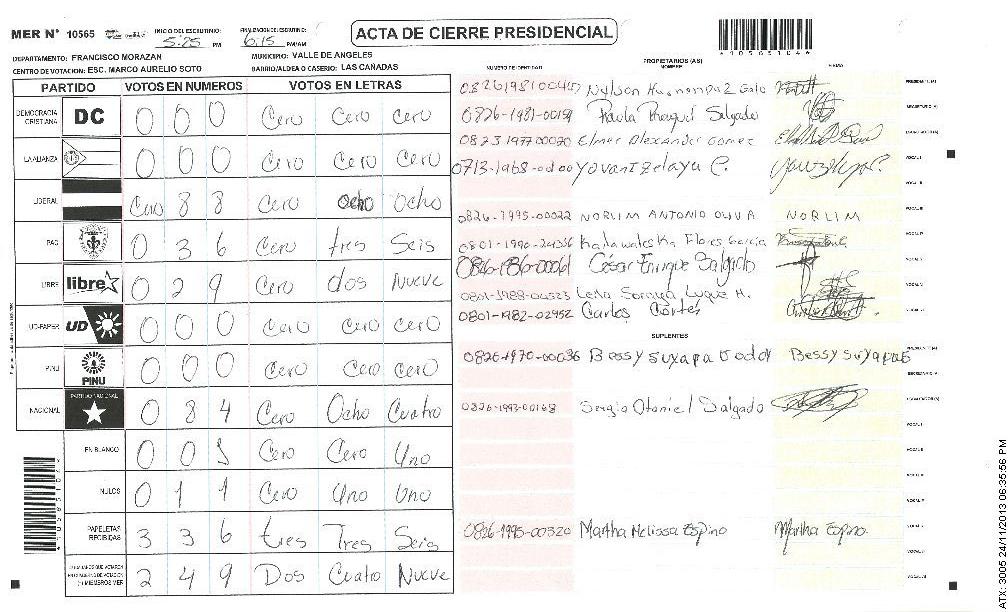 MER N° 10565
INICIO DEL ESCRUTINIO: 5:25 PM
FINALIZACION DEL ESCRUTINIO: 6:15 PM/AM
ACTA DE CIERRE PRESIDENCIAL
DEPARTAMENTO: FRANCISCO MORAZAN
MUNICIPIO: VALLE DE ANGELES
CENTRO DE VOTACION: ESC. MARCO AURELIO SOTO
BARRIO/ALDEA O CASERIO: LAS CAÑADAS
PARTIDO VOTOS EN NUMEROS VOTOS EN LETRAS
DEMOCRACIA CRISTIANA DC 0 0 0 Cero Cero Cero
LA ALIANZA 0 0 0 Cero Cero Cero
LIBERAL Cero 8 8 Cero Ocho Ocho
PAC 0 3 6 Cero tres Seis
LIBRE libre 0 2 9 Cero dos Nueve
UD-FAPER UD 0 0 0 Cero Cero Cero
PINU PINU 0 0 0 Cero Cero Cero
NACIONAL PARTIDO NACIONAL 0 8 4 Cero Ocho Cuatro
EN BLANCO 0 0 1 Cero Cero Uno
NULOS 0 1 1 Cero Uno Uno
PAPELETAS RECIBIDAS 3 3 6 tres Tres Seis
MIEMBROS MER 2 4 9 Dos Cuatro Nueve
NUMERO DE IDENTIDAD PROPIETARIOS (AS) NOMBRE FIRMA
Nylson
0826-1981-00154 Paula Raquel Salgado
0823197700020 Elmer Alexander Gomez
0713-1968- Yovani Zelaya C.
0826-1995-00022 NORLIM ANTONIO OLIVA NORLIM
0801-1990-24336 Flores Garcia
César Enrique Salgado
Lena Soraya Luque H.
0801-1982-02952 Carlos Cortes
SUPLENTES
0826-1970-00036 Bessy Suyapa Bessy Suyapa
0826-1993-00168 Sergio Otoniel Salgado
0826-1995-00320 Martha Melissa Espino Martha Espino.
ATX: 3005 24/11/2013 06:35:56 PM